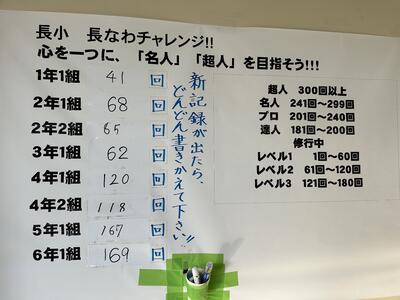 長小 長なわチャレンジ!!
心を一つに、「名人」「超人」を目指そう!!!
1年1組 41 回
2年1組 68 回
2年2組 65 回
3年1組 62 回
4年1組 120 回
4年2組 118 回
5年1組 167 回
6年1組 169 回
新記録が出たら、
どんどん書きかえて下さい!!
超人 300回以上
名人 241回~299回
プロ 201回~240回
達人 181回~200回
修行中
レベル1 1回~60回
レベル2 61回~120回
レベル3 121回~180回